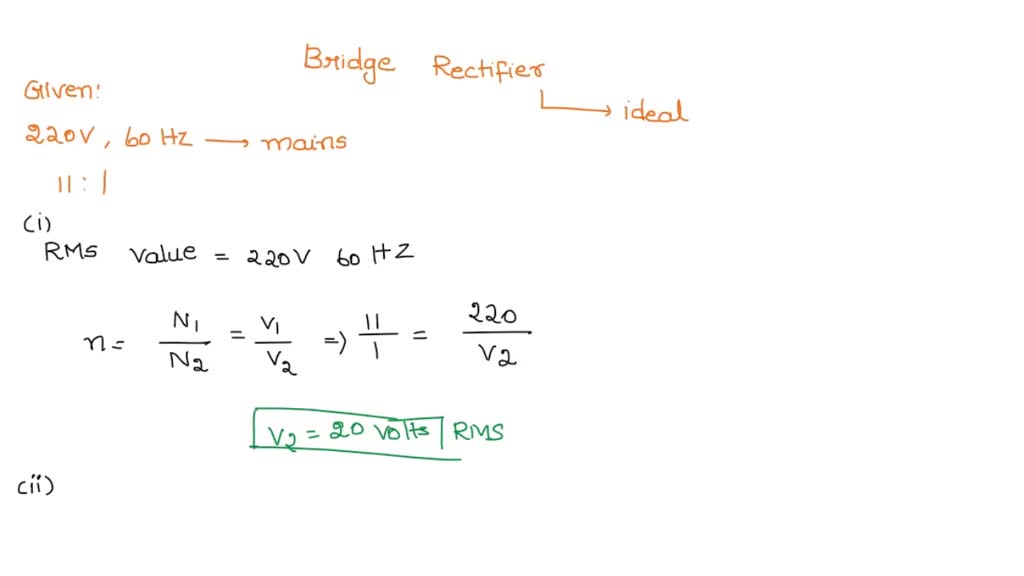 Bridge Rectifier
ideal
Given:
220V, 60 HZ → mains
11 : 1
(i)
RMS value = 220V 60 HZ
n = N1/N2 = V1/V2 => 11/1 = 220/V2
V2 = 20 Volts RMS
(ii)